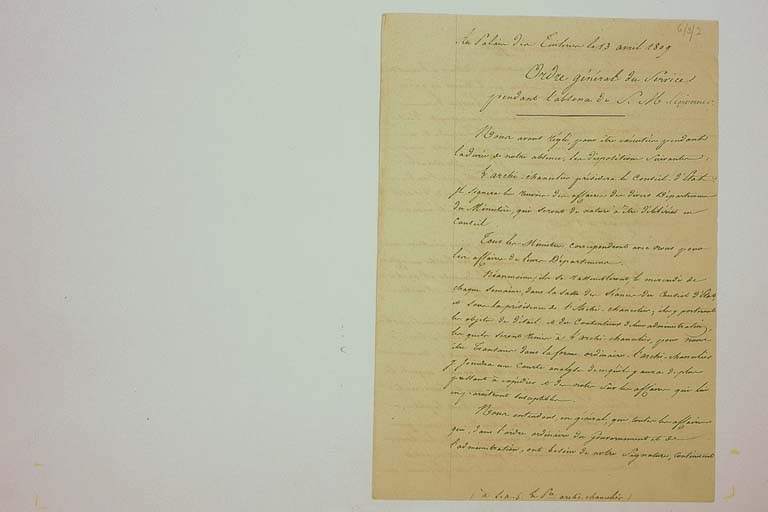 6/2/2
Au Palais des Tuileries le 13 avril 1809
Ordre général du Service
pendant l'absence de S. M. l'Empereur
Nous avons réglé pour être exécutées pendant
la durée de notre absence, les dispositions suivantes.
L'archi-chancelier présidera le Conseil d'Etat.
Il signera le renvoi des affaires des divers Départemens
du Ministère, qui seront de nature à être délibérées en
Conseil
Tous les Ministres correspondront avec nous pour
les affaires de leurs Départemens.
Néanmoins, ils se rassembleront, le mercredi de
chaque semaine, dans la salle des séances du Conseil d'Etat
et sous la présidence de l'Archi-chancelier; ils y porteront
les objets de détail et du Contentieux de leur administration,
lesquels seront remis à l'archi-chancelier, pour nous
être transmis dans la forme ordinaire. l'archi-chancelier
y joindra une courte analyse de ce qu'il y aura de plus
pressant à expédier et des notes sur les affaires qui lui
en paraîtront susceptibles.
Nous entendons, en général, que toutes les affaires
qui, dans l'ordre ordinaire du Gouvernement et de
l'administration, ont besoin de notre Signature, continuent
(à S. A. S. le Pce archi-chancelier)